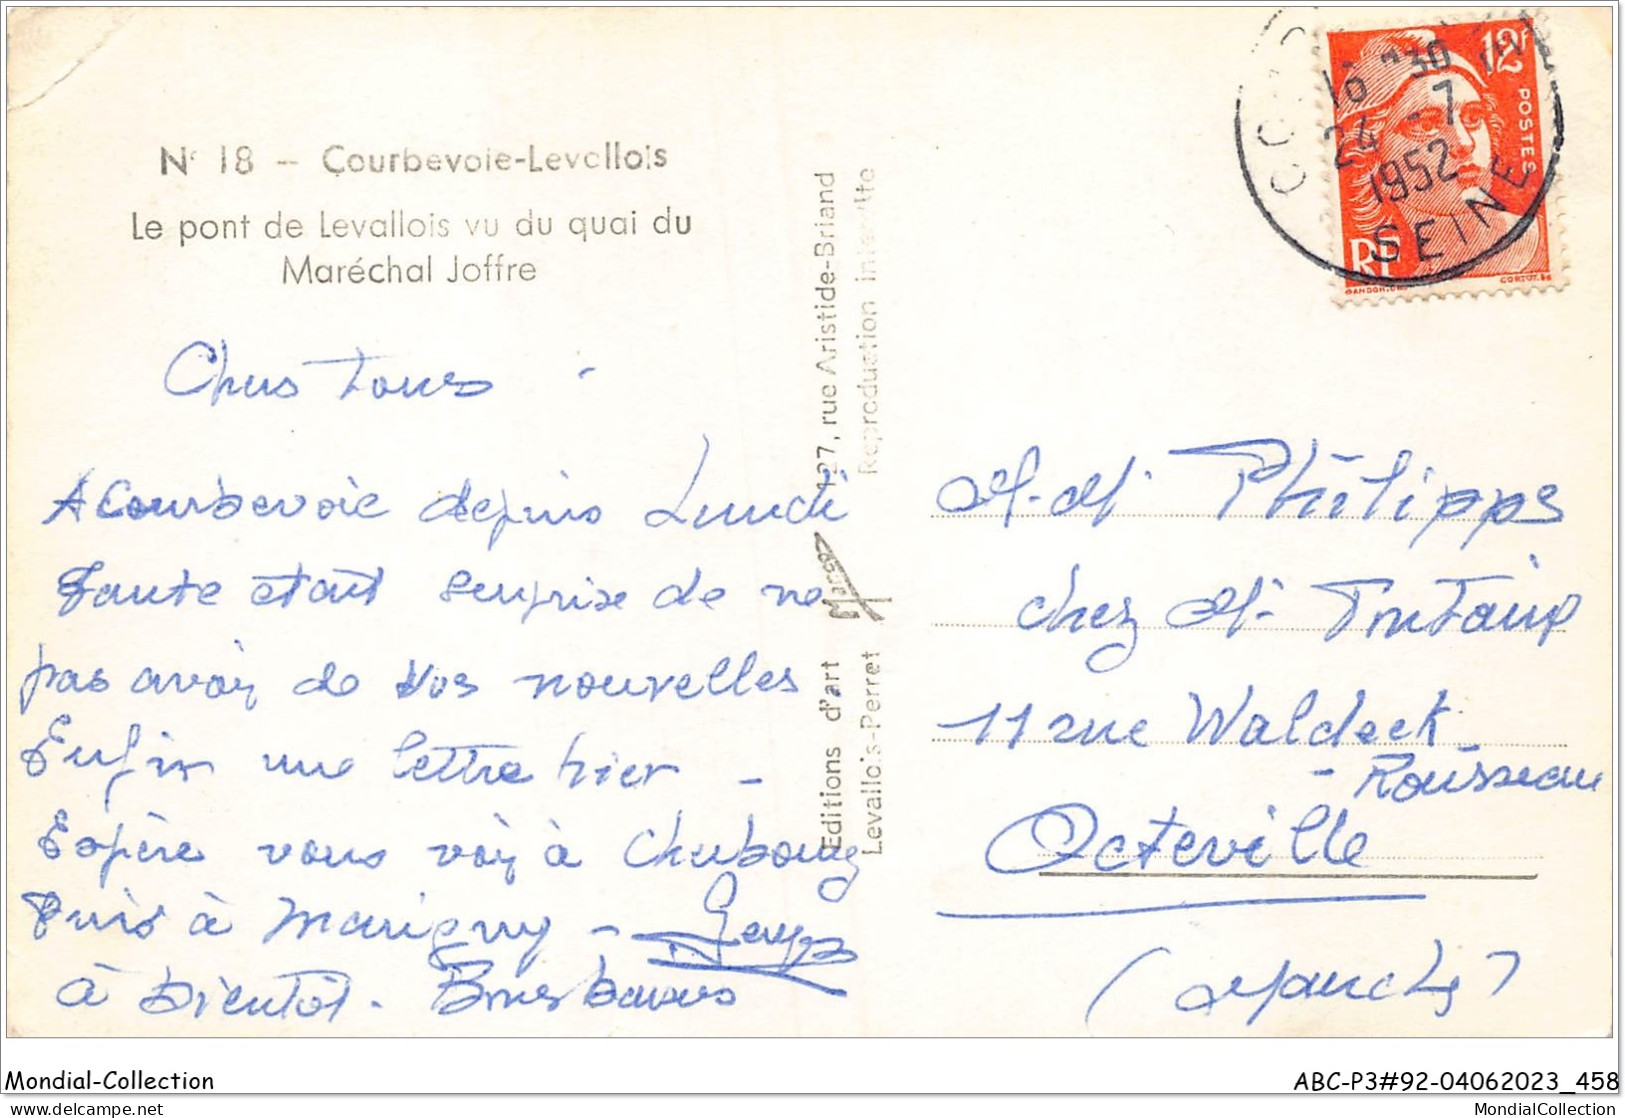 N° 18 – Courbevoie-Levallois
Le pont de Levallois vu du quai du
Maréchal Joffre
Chers tous -
A Courbevoie depuis Lundi
Tante etait surprise de ne
pas avoir de vos nouvelles
Enfin une lettre hier -
Espère vous voir à Cherbourg
Puis à Marigny - Georges
à bientôt. Bons baisers
Editions d'art Marge 127, rue Aristide-Briand
Levallois-Perret Reproduction interdite
16 H30
24 - 7
1952
SEINE
12F
POSTES
RF
GANDON
CORTOT. SC
M. M. Philippe
chez M.
11 rue Waldeck-
- Rousseau
Octeville
(Manche)
Mondial-Collection
ABC-P3#92-04062023_458
delcampe.net
MondialCollection